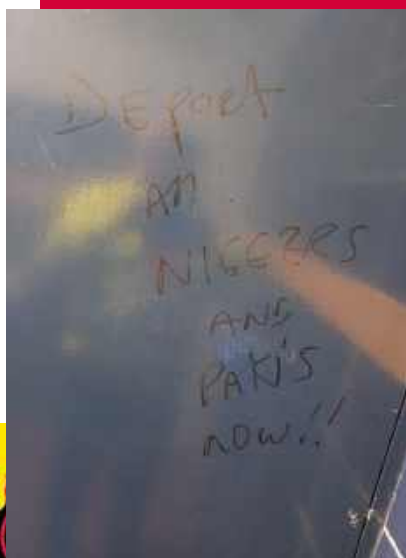 DEPORT
All
NIGGERS
AND
PAKI'S
NOW!!